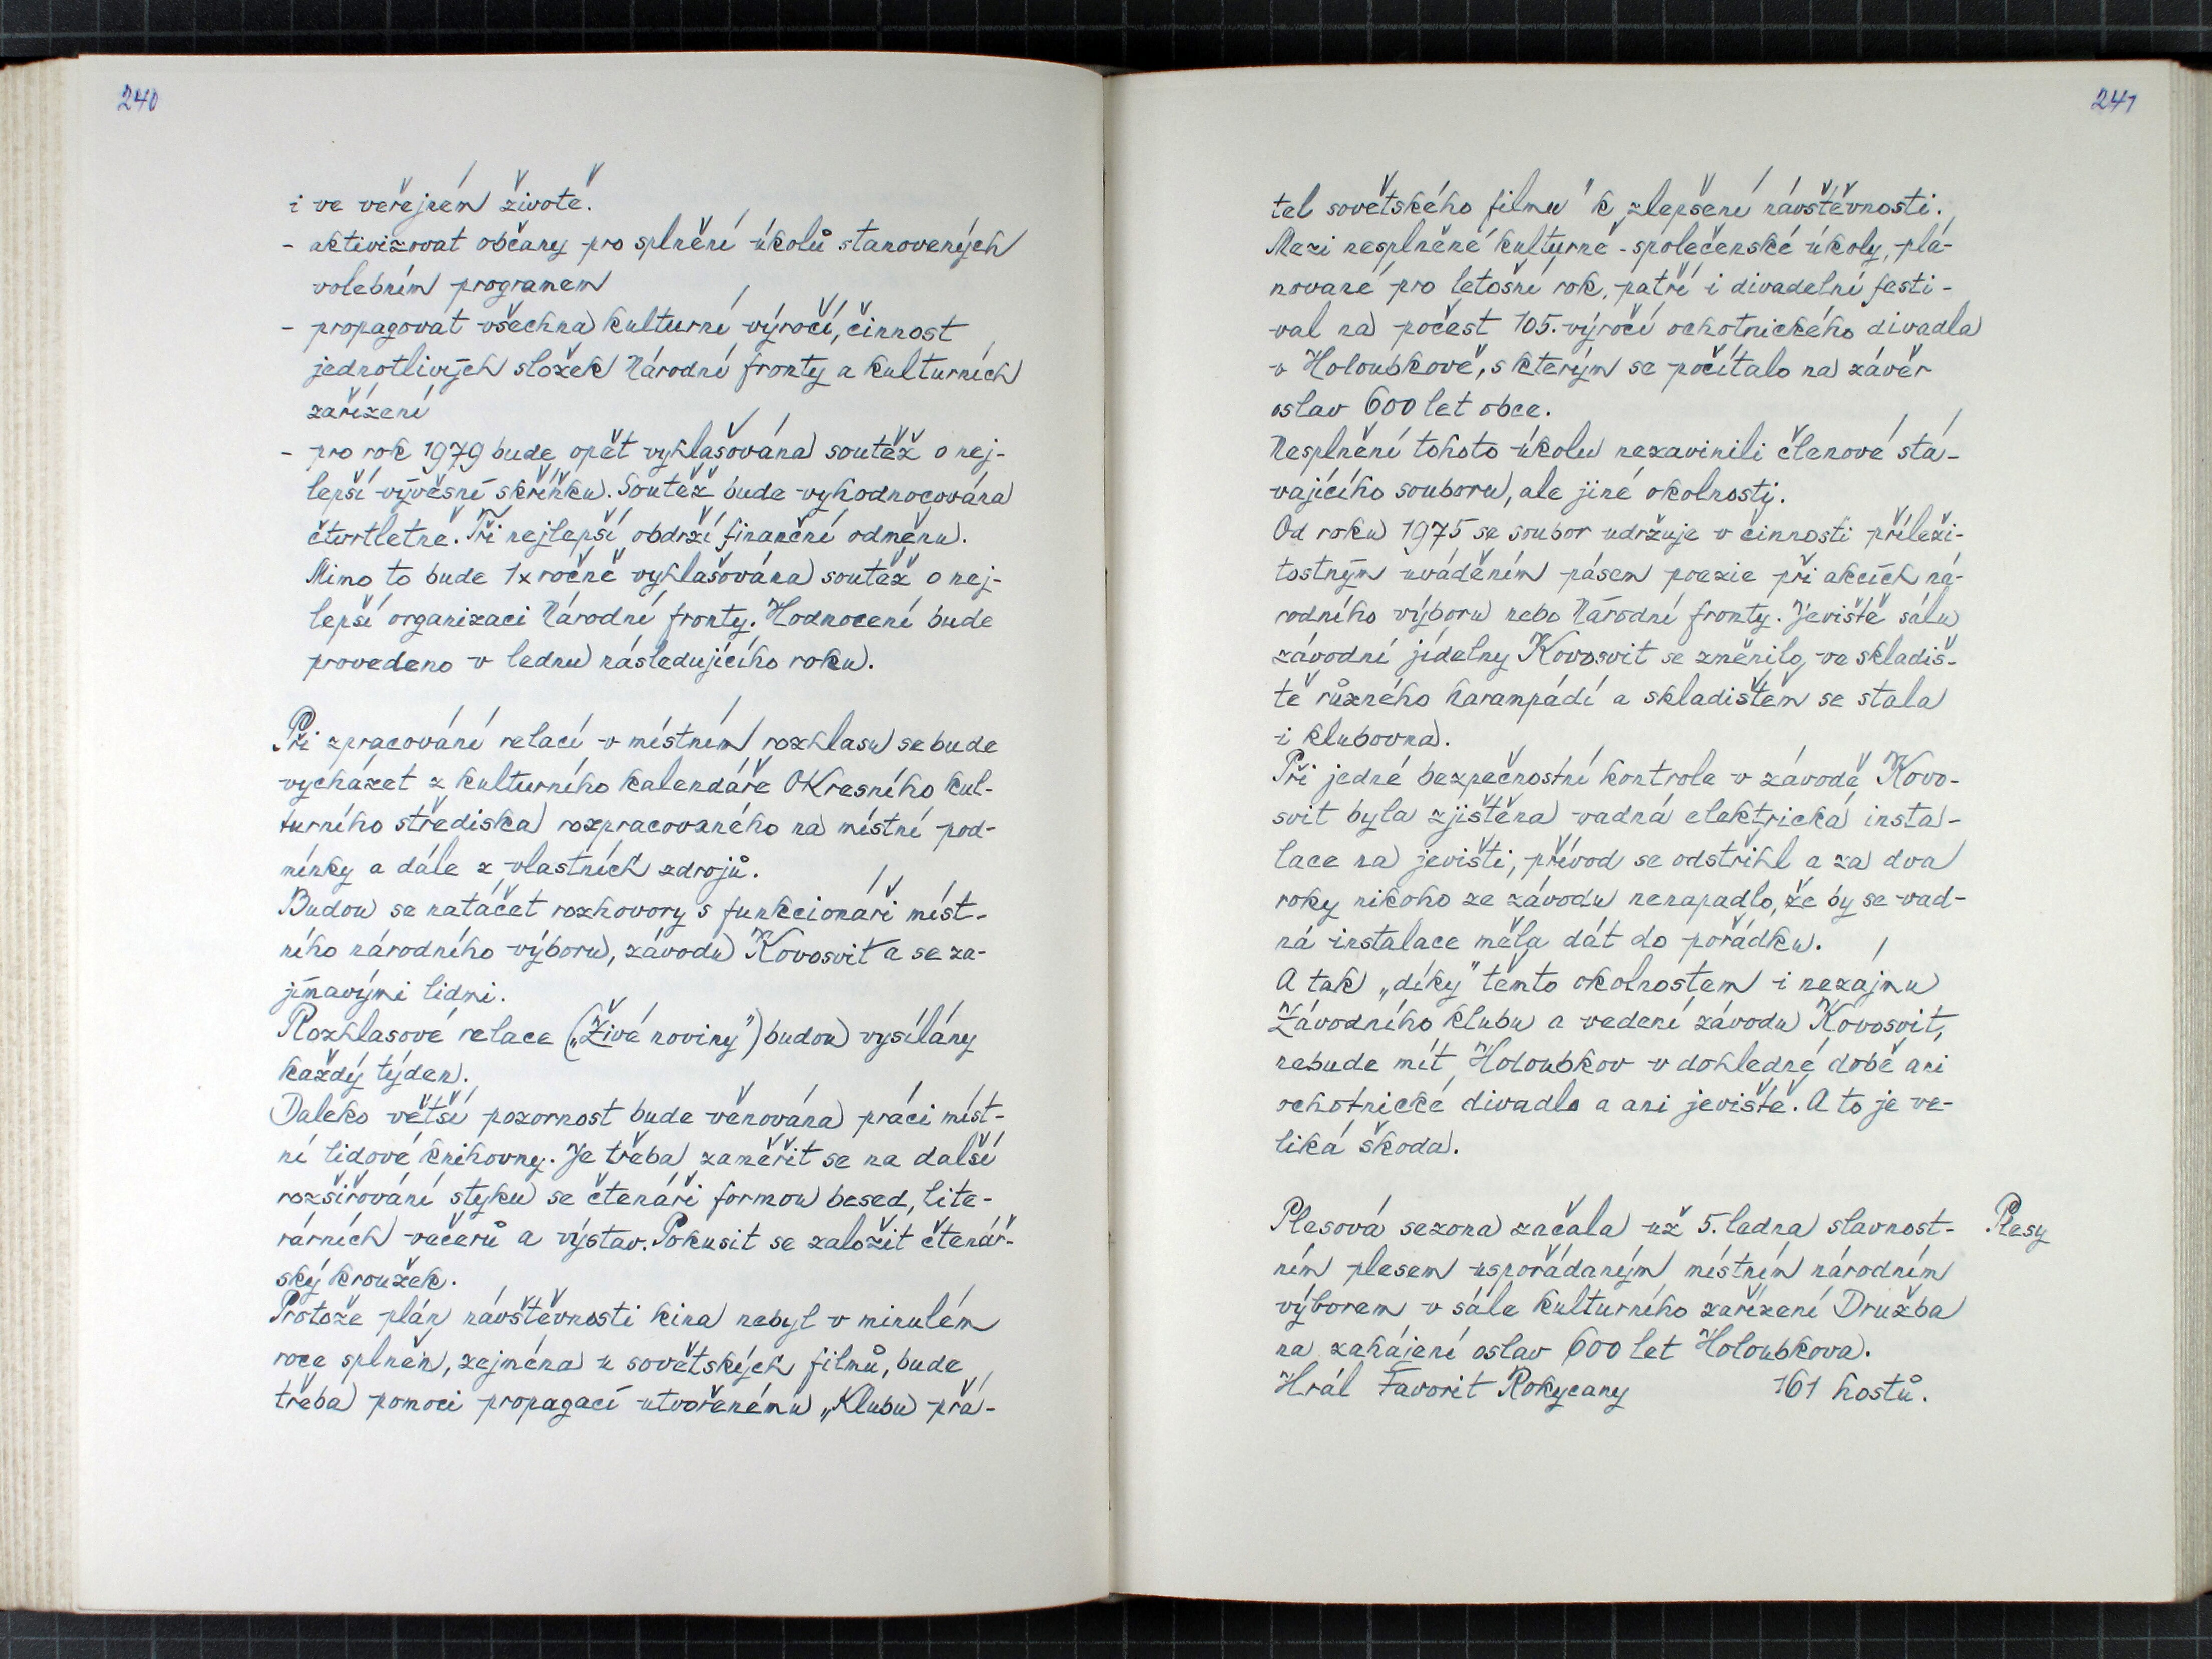 240
i ve veřejném životě.
- aktivizovat občany pro splnění úkolů stanovených
volebním programem
- propagovat všechna kulturní výročí, činnost
jednotlivých složek Národní fronty a kulturních
zařízení
- pro rok 1979 bude opět vyhlašována soutěž o nej-
lepší vývěsní skříňku. Soutěž bude vyhodnocována
čtvrtletně. Tři nejlepší obdrží finanční odměnu.
Mimo to bude 1x ročně vyhlašována soutěž o nej-
lepší organizaci Národní fronty. Hodnocení bude
provedeno v lednu následujícího roku.
Při zpracování relací v místním rozhlasu se bude
vycházet z kulturního kalendáře Okresního kul-
turního střediska rozpracovaného na místní pod-
mínky a dále z vlastních zdrojů.
Budou se natáčet rozhovory s funkcionáři míst-
ního národního výboru, závodu Kovosvit a se za-
jímavými lidmi.
Rozhlasové relace („Živé noviny") budou vysílány
každý týden.
Daleko větší pozornost bude věnována práci míst-
ní lidové knihovny. Je třeba zaměřit se na další
rozšiřování styku se čtenáři formou besed, lite-
rárních večerů a výstav. Pokusit se založit čtenář-
ský kroužek.
Protože plán návštěvnosti kina nebyl v minulém
roce splněn, zejména u sovětských filmů, bude
třeba pomoci propagací utvořenému „Klubu přá-
241
tel sovětského filmu" k zlepšení návštěvnosti.
Mezi nesplněné kulturně-společenské úkoly, plá-
nované pro letošní rok, patří i divadelní festi-
val na počest 105. výročí ochotnického divadla
v Holoubkově, s kterým se počítalo na závěr
oslav 600 let obce.
Nesplnění tohoto úkolu nezavinili členové stá-
vajícího souboru, ale jiné okolnosti.
Od roku 1975 se soubor udržuje v činnosti příleži-
tostným uváděním pásem poezie při akcích ná-
rodního výboru nebo Národní fronty. Jeviště sálu
závodní jídelny Kovosvit se změnilo ve skladiš-
tě různého harampádí a skladištěm se stala
i klubovna.
Při jedné bezpečnostní kontrole v závodě Kovo-
svit byla zjištěna vadná elektrická insta-
lace na jevišti, přívod se odstřihl a za dva
roky nikoho ze závodu nenapadlo, že by se vad-
ná instalace měla dát do pořádku.
A tak „díky" těmto okolnostem i nezájmu
Závodního klubu a vedení závodu Kovosvit,
nebude mít Holoubkov v dohledné době ani
ochotnické divadlo a ani jeviště. A to je ve-
liká škoda.
Plesová sezona začala už 5. ledna slavnost- Plesy
ním plesem uspořádaným místním národním
výborem v sále kulturního zařízení Družba
na zahájení oslav 600 let Holoubkova.
Hrál Favorit Rokycany 161 hostů.